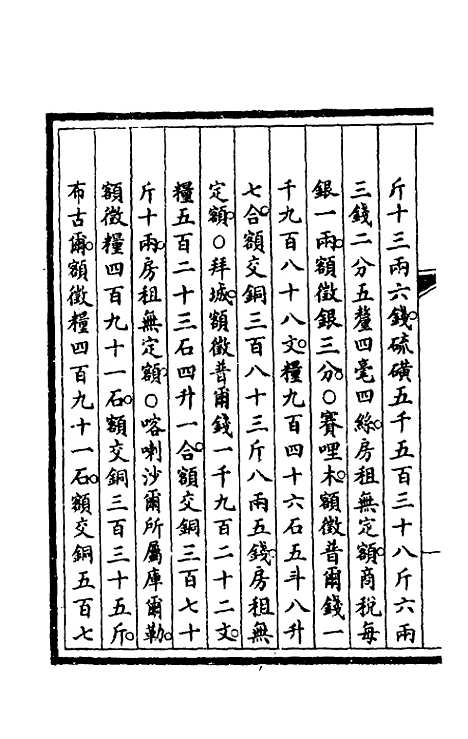 斤十三兩六錢硫磺五千五百三十八斤六兩
三錢二分五釐四毫四絲房租無定額商稅每
銀一兩額徵銀三分○賽哩木額徵普爾錢一
千九百八十八文糧九百四十六石五斗八升
七合額交銅三百八十三斤八兩五錢房租無
定額○拜城額徵普爾錢一千九百二十二文
糧五百二十三石四升一合額交銅三百七十
斤十兩房租無定額○喀喇沙爾所屬庫爾勒
額徵糧四百九十一石額交銅三百三十五斤
布古爾額徵糧四百九十一石額交銅五百七